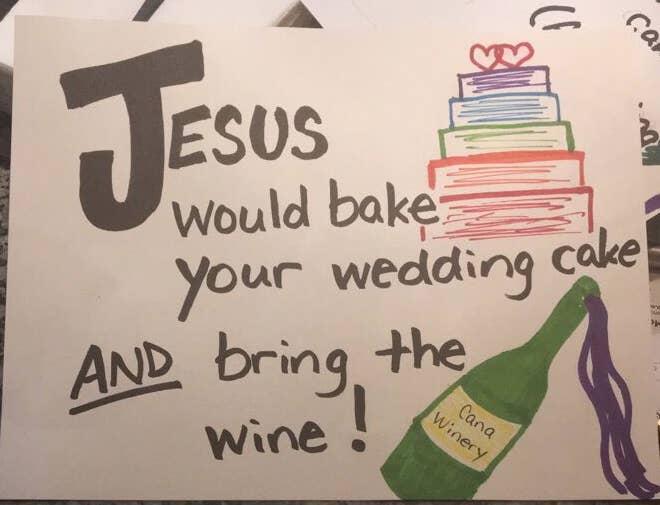 JESUS
would bake
your wedding cake
AND bring the
wine!
Cana
Winery